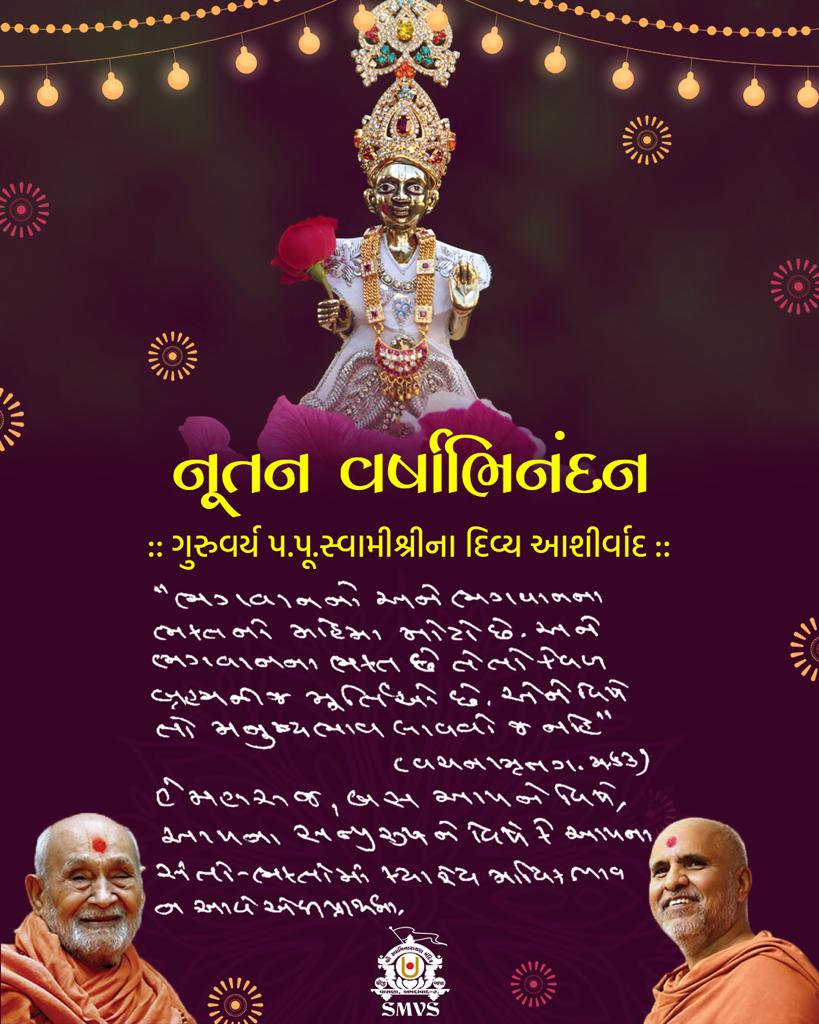 નૂતન વર્ષાભિનંદન
:: ગુરુવર્ય પ.પૂ.સ્વામીશ્રીના દિવ્ય આશીર્વાદ ::
"ભગવાનનો અને ભગવાનના
ભક્તનો મહિમા મોટો છે. અને
ભગવાનના ભક્ત છે તે તો કેવળ
બ્રહ્મની જ મૂર્તિઓ છે. એને વિષે
તો મનુષ્યભાવ લાવવો જ નહિ"
(વચનામૃત ગ. મ. ૬૩)
હે મહારાજ, બસ આપને વિષે,
આપના સત્પુરુષને વિષે કે આપના
સંતો-ભક્તોમાં ક્યારેય માયિકભાવ
ન આવે એજ પ્રાર્થના.
SMVS